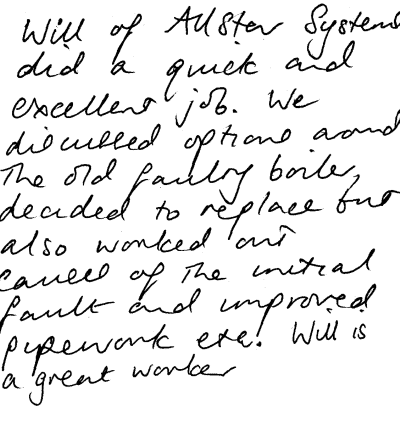 Will of Allstar Systems
did a quick and
excellent job. We
discussed options around
the old faulty boiler,
decided to replace but
also worked out
cause of the initial
fault and improved
pipework etc. Will is
a great worker